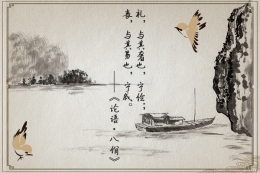 礼，与其奢也，宁俭；
丧，与其易也，宁戚。
——《论语·八佾》